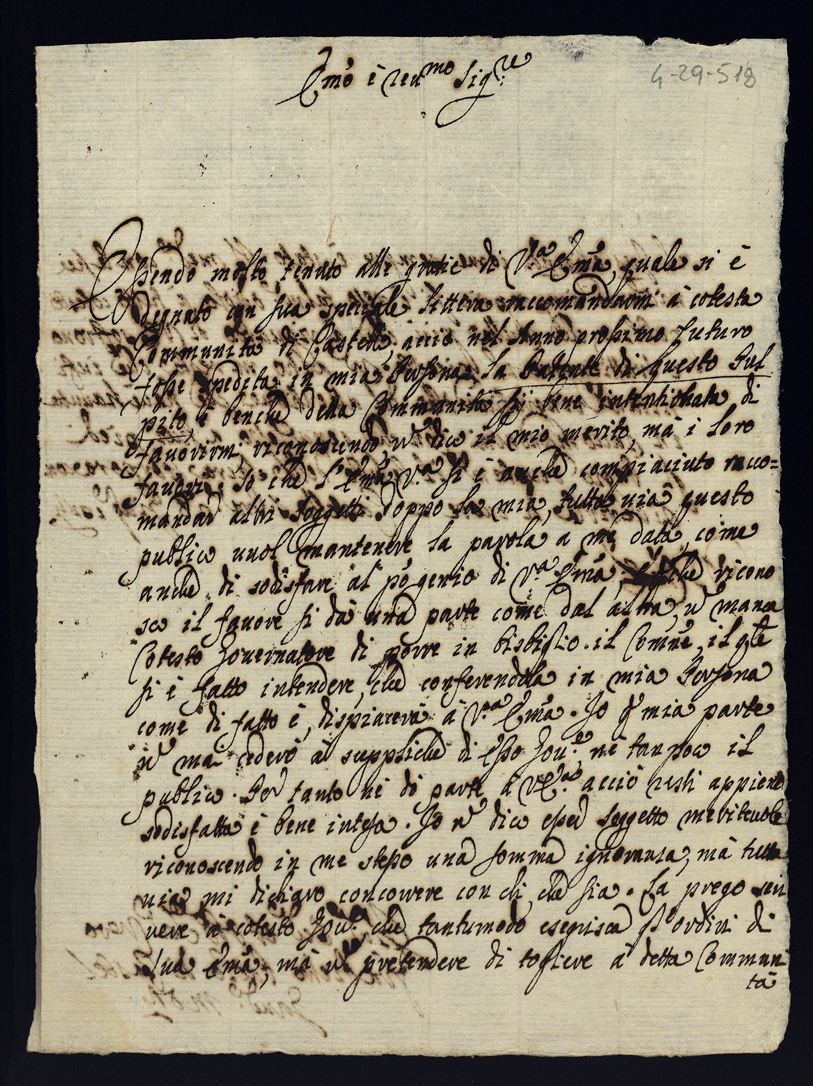 4-29-518
Emõ è reu^mo Sig^re
Essendo molto tenuto alle gratie di V.^a Emã, quale si è
degnato con sua speciale lettera raccomandarmi à cotesta
Communità di Castello, acciò nel Anno prossimo futuro
fosse spedita in mia Persona la Patente di questo
pito, è benche detta Communità sij bene intentionata di
favorirmi, riconoscendo, nõ dico il mio merito, mà i loro
favori. Sò che l'Emã V.^a si è anche compiaciuto racco=
mandar altri soggetti doppo la mia, tutta uia questo
publico uuol mantenere la parola a me data, come
anche di sodisfare al põ genio di V.^a Emã, che ricono
sco il favore si da una parte come dal altra, nõ manca
Cotesto Gouernatore di porre in bisbiglio il Comũe, il qle
si è fatto intendere, che conferendola in mia Persona
come di fatto è, dispiacerà à V.^a Emã. Io p mia parte
nõ mai cederò à suppliche di esso Gou.^e nè tanpoco il
publico. Per tanto ne dò parte à V.E.^a acciò resti appieno
sodisfatta è bene intesa. Io nõ dico esser soggetto meriteuole
riconoscendo in me stesso una somma ignoranza, mà tutta
uia mi dichiaro concorrere con chi che sia. La prego scri
uere à cotesto Gou.^e che tantumodo eseguisca l'ordini di
Sua Emã, mà nõ pretendere di togliere à detta Communi
tà